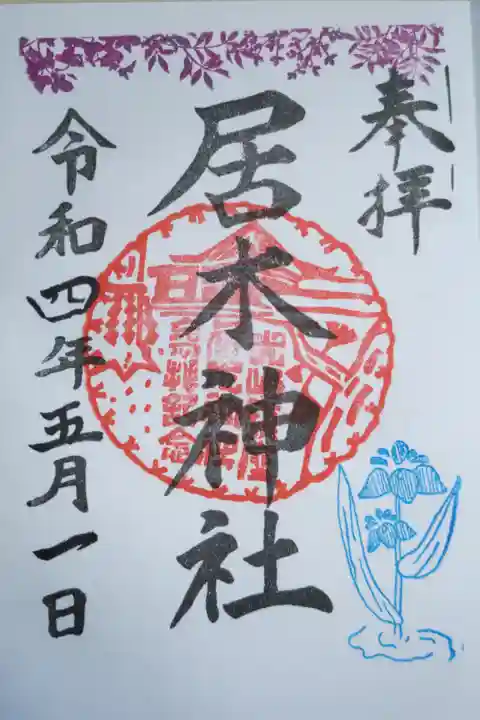 奉拝
居木神社
令和四年五月一日